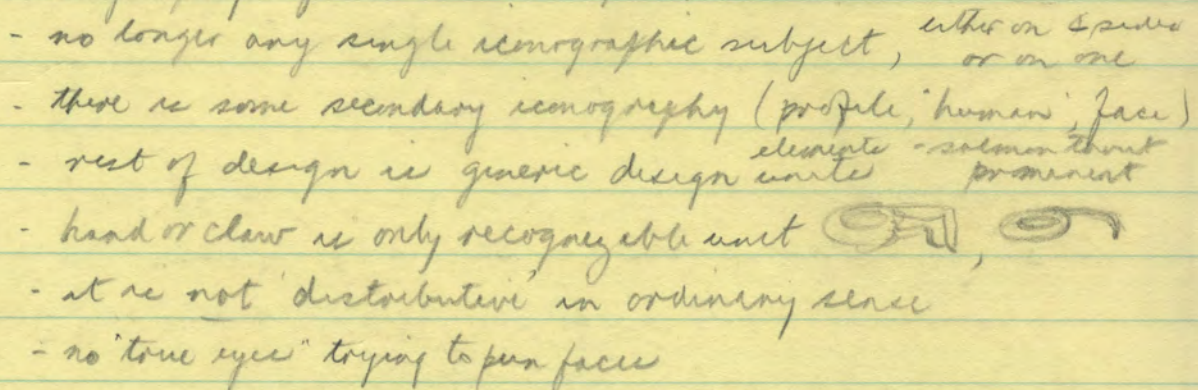 - no longer any single iconographic subject, either on 4 sides or on one
- there is some secondary iconography (profile, 'human', face)
- rest of design is generic design units elements - salmon trout prominent
- hand or claw is only recognizable unit ,
- it is not 'distributive' in ordinary sense
- no "true eyes" trying to pun faces